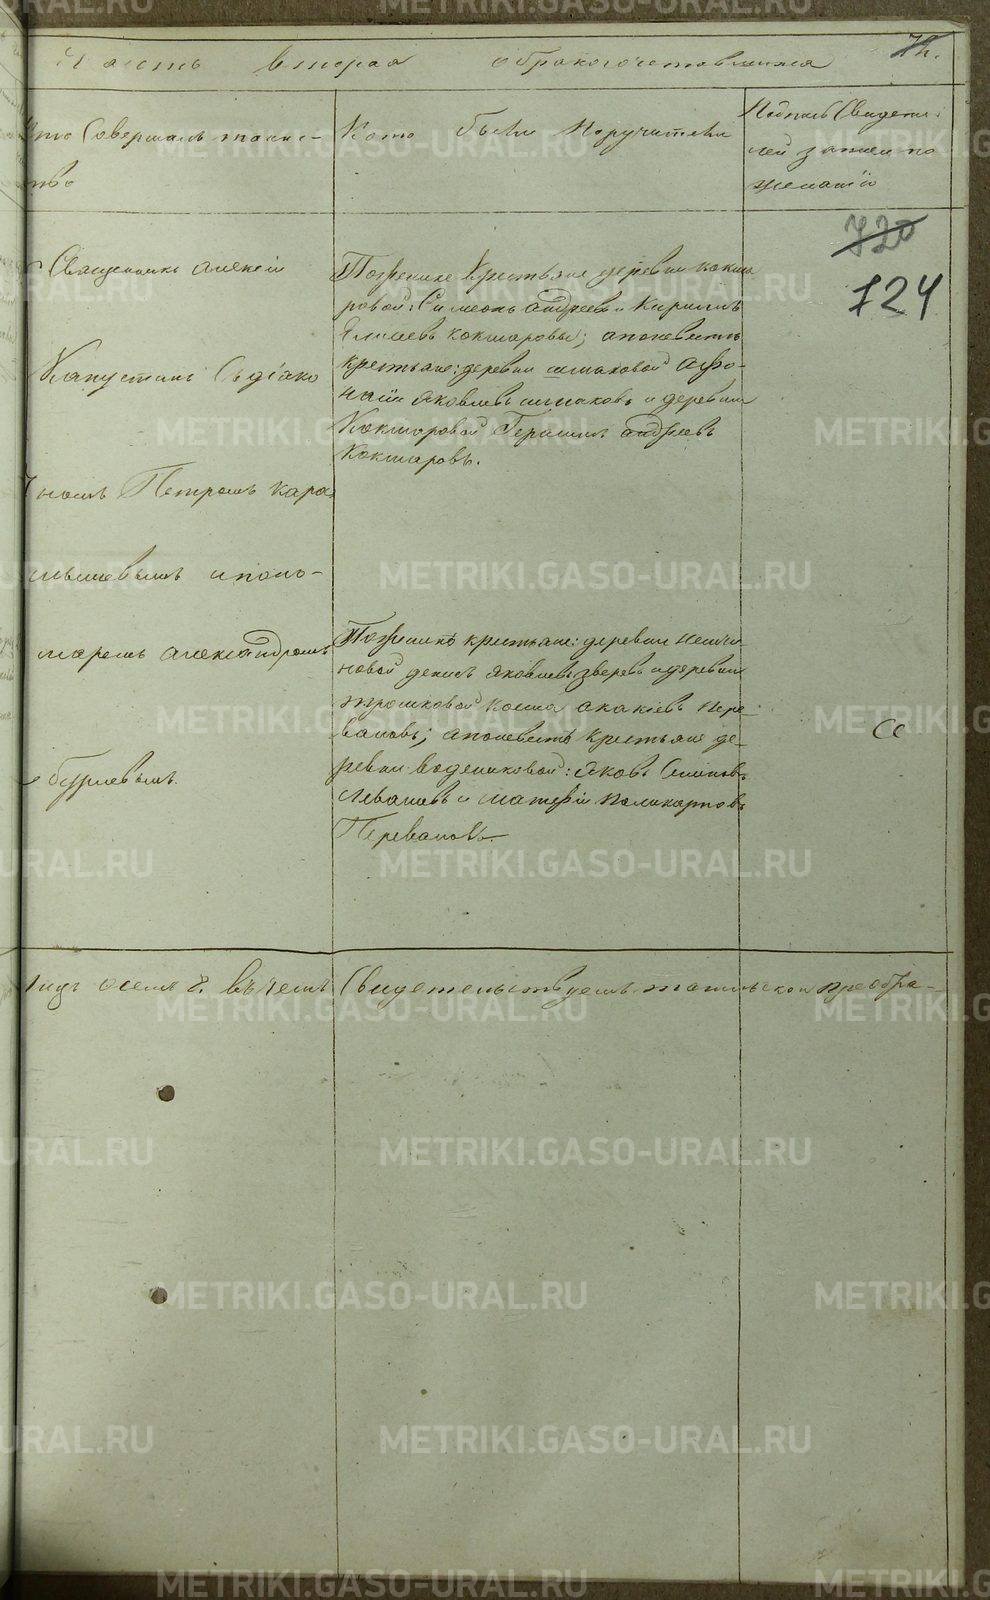 Часть вторая о бракосочетавшихся
72.
Кто Совершалъ таинс-
тво
Кто были Поручители
Подпись Свидете-
лей записи по
желанію
720
124
Священникъ Алексій
Капустинъ Съ діако
номъ Петромъ Кара
мышевымъ и поно-
маремъ Александромъ
Бурневымъ.
По женихе Крестьяне деревни Кокша
ровой: Симеонъ Андреевъ и Кириллъ
Елисеевъ Кокшаровы; а по невестъ
крестьяне: деревни шмаковой Афо-
насій Яковлевъ шмаковъ и деревни
Кокшаровой Герасимъ Андреевъ
Кокшаровъ.
По женихъ крестьяне: деревни
новой Денисъ Яковлевъ Зверевъ и деревни
трошковой Косма Акакіевъ Пере-
валовъ; а по невестъ крестьяне де-
ревни водениковой: Яковъ Семеновъ
Левашевъ и Матфей Поликарповъ
Переваловъ.
осемь 8. въ чемъ Свидетельствуемъ преобра-
METRIKI.GASO-URAL.RU